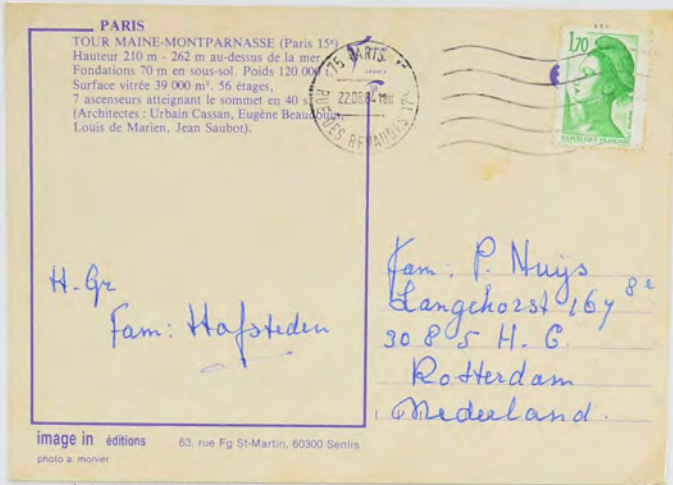 PARIS
TOUR MAINE-MONTPARNASSE (Paris 15e)
Hauteur 210 m - 262 m au-dessus de la mer
Fondations 70 m en sous-sol. Poids 120 000
Surface vitrée 39 000 m². 56 étages,
7 ascenseurs atteignant le sommet en 40 s
(Architectes : Urbain Cassan, Eugène Beaudouin,
Louis de Marien, Jean Saubot).
75 PARIS 17
FRANCE
22.08.84 18H
RUE DES RENAUDES 17e
1,70
REPUBLIQUE FRANÇAISE
H. Gr
Fam: Hofsteden
Fam: P. Nuijs
Langehorst 167 8e
3085 H. C.
Rotterdam
Nederland.
image in éditions 63, rue Fg St-Martin, 60300 Senlis
photo a. monier